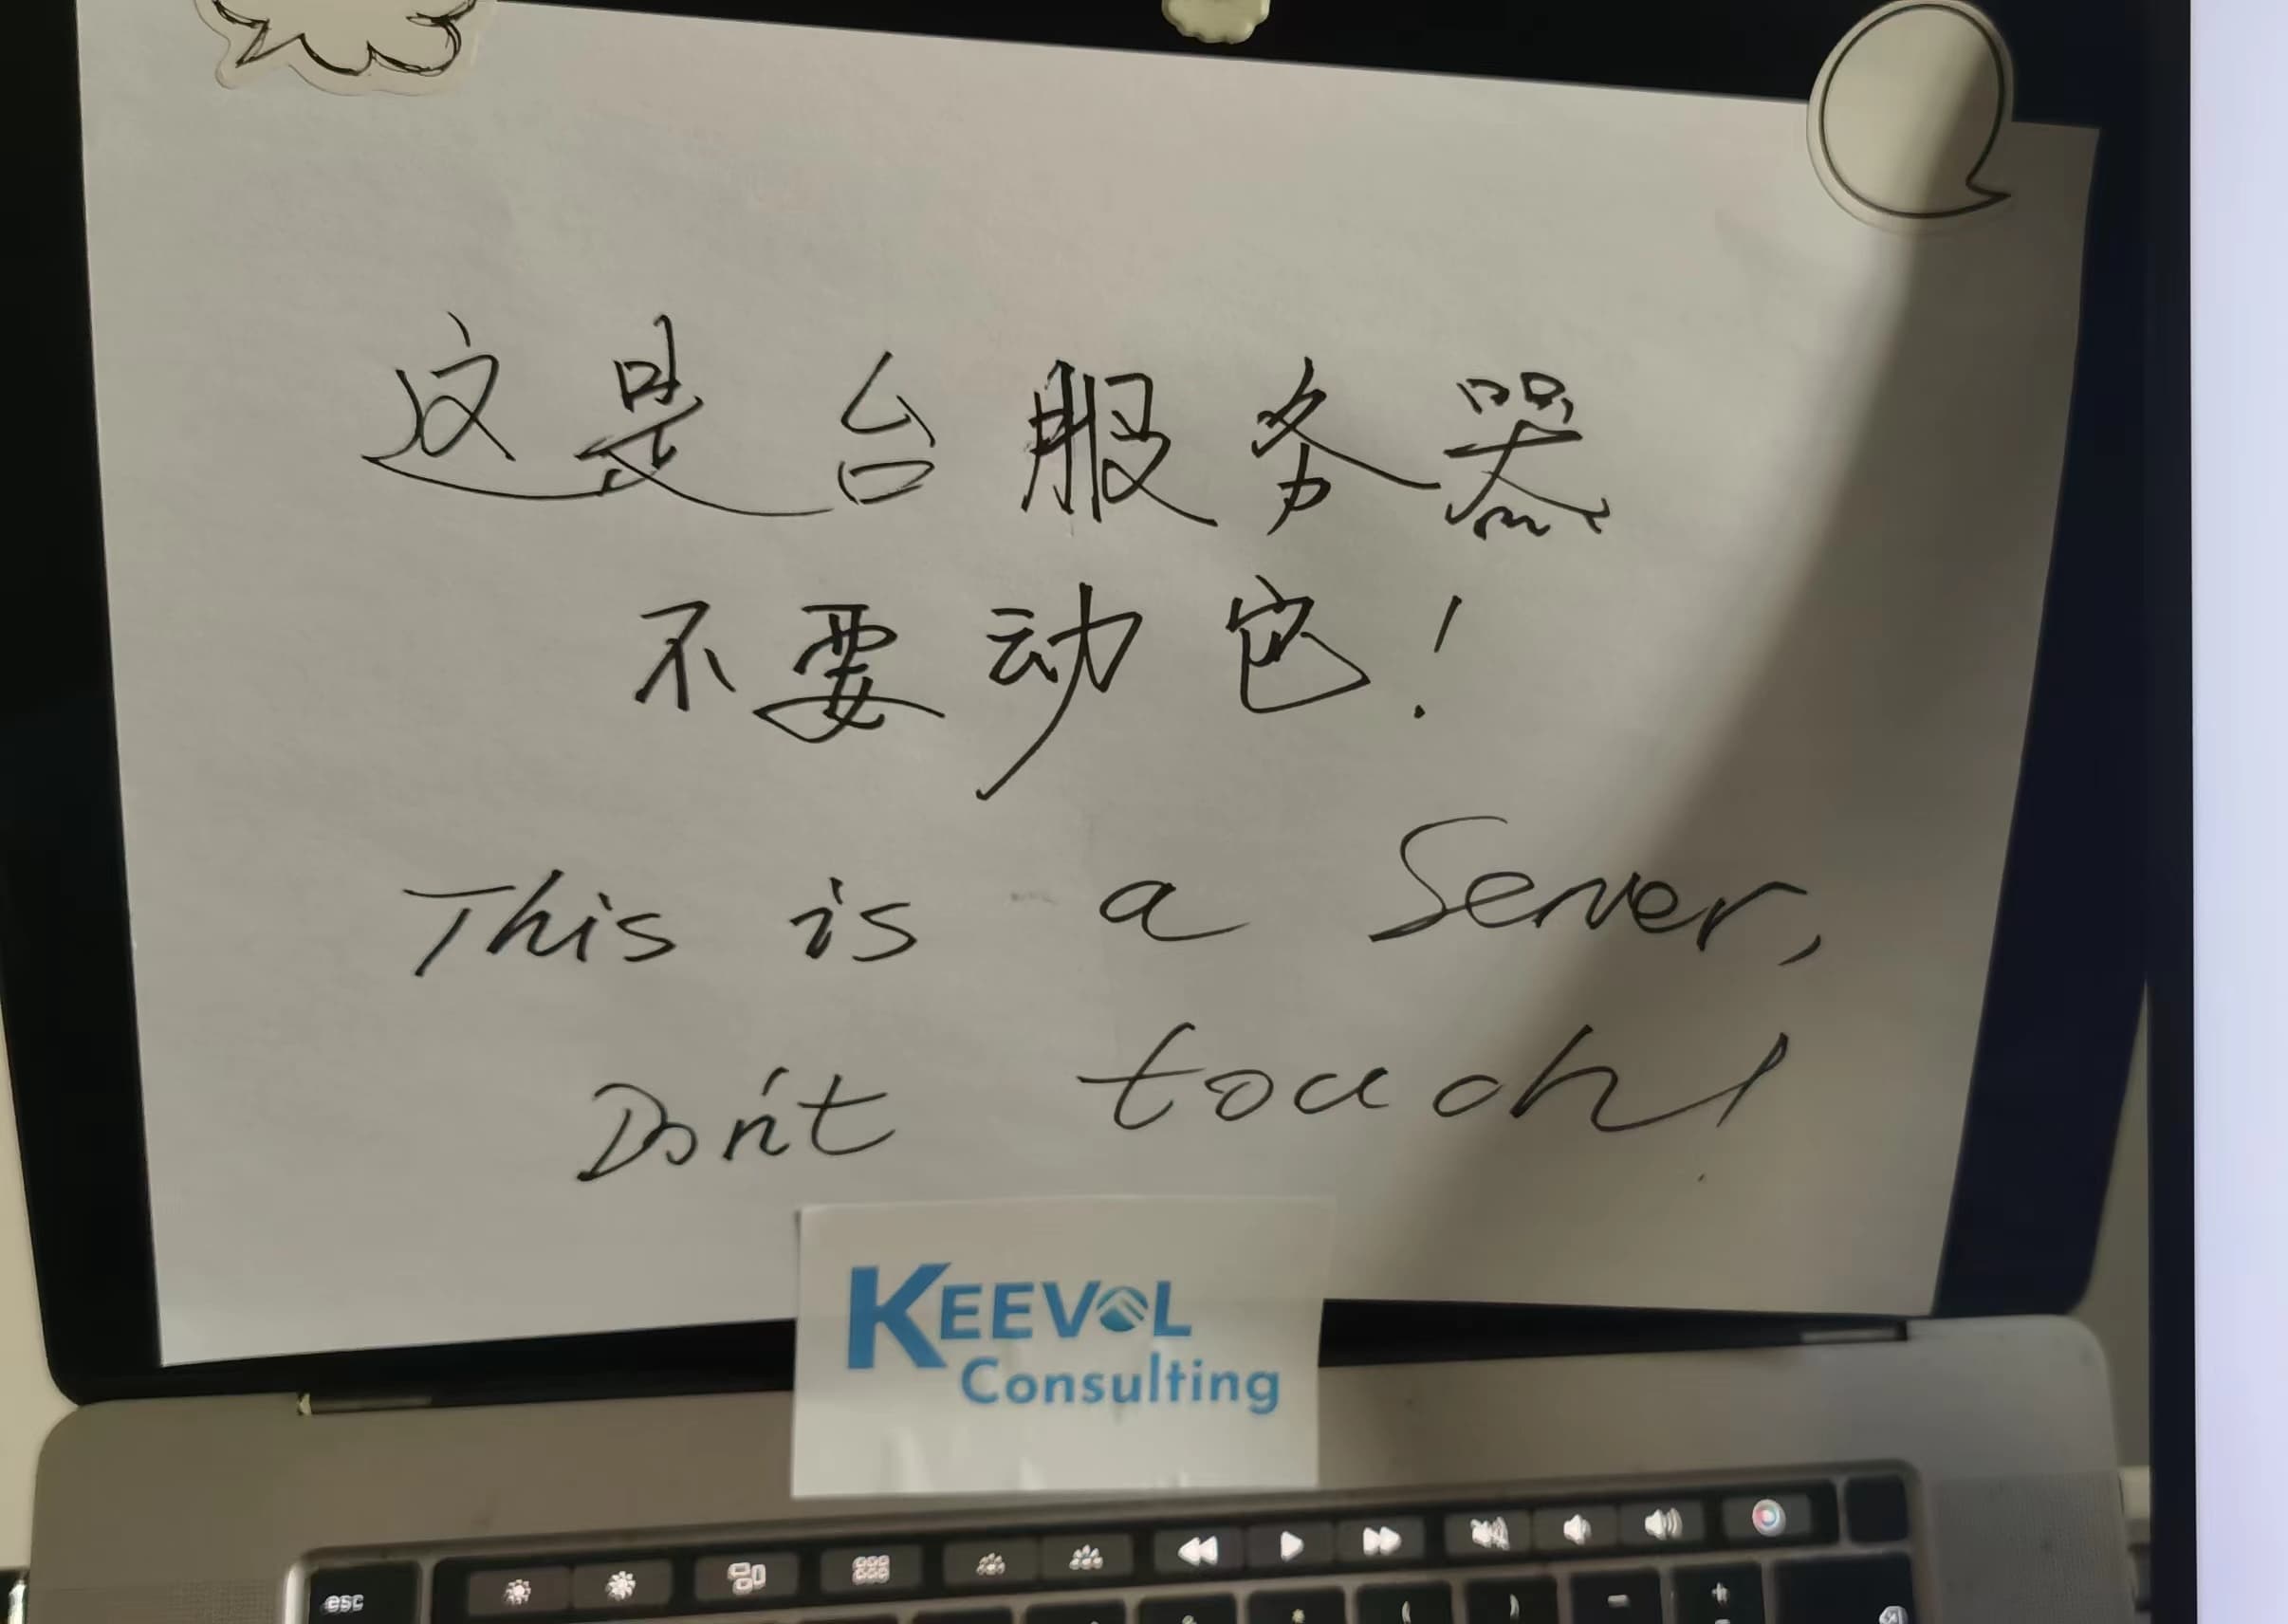 这是台服务器
不要动它!
This is a Server,
Don't touch!
KEEVOL
Consulting
esc